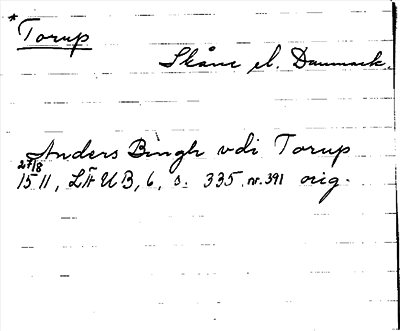 * Torup
Skåne el. Danmark.
Anders Bingh vdi Torup
27/8
1511, LÄUB, 6, s. 335, nr. 391 orig.